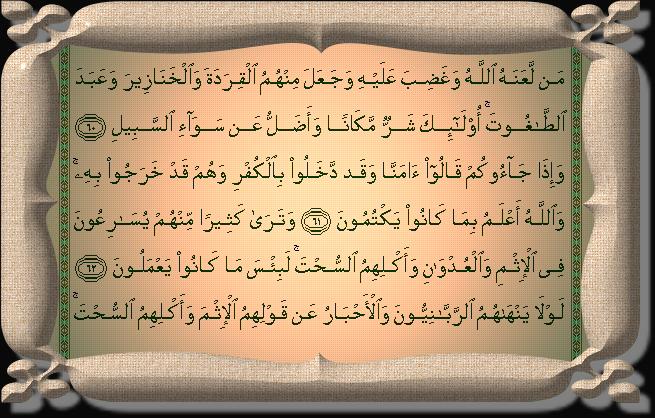 مَن لَّعَنَهُ ٱللَّهُ وَغَضِبَ عَلَيْهِ وَجَعَلَ مِنْهُمُ ٱلْقِرَدَةَ وَٱلْخَنَازِيرَ وَعَبَدَ
ٱلطَّـٰغُوتَ ۚ أُو۟لَـٰٓئِكَ شَرٌّ مَّكَانًا وَأَضَلُّ عَن سَوَآءِ ٱلسَّبِيلِ ٦٠
وَإِذَا جَآءُوكُمْ قَالُوٓا۟ ءَامَنَّا وَقَد دَّخَلُوا۟ بِٱلْكُفْرِ وَهُمْ قَدْ خَرَجُوا۟ بِهِۦ ۚ
وَٱللَّهُ أَعْلَمُ بِمَا كَانُوا۟ يَكْتُمُونَ ٦١ وَتَرَىٰ كَثِيرًا مِّنْهُمْ يُسَـٰرِعُونَ
فِى ٱلْإِثْمِ وَٱلْعُدْوَٰنِ وَأَكْلِهِمُ ٱلسُّحْتَ ۚ لَبِئْسَ مَا كَانُوا۟ يَعْمَلُونَ ٦٢
لَوْلَا يَنْهَىٰهُمُ ٱلرَّبَّـٰنِيُّونَ وَٱلْأَحْبَارُ عَن قَوْلِهِمُ ٱلْإِثْمَ وَأَكْلِهِمُ ٱلسُّحْتَ ۚ